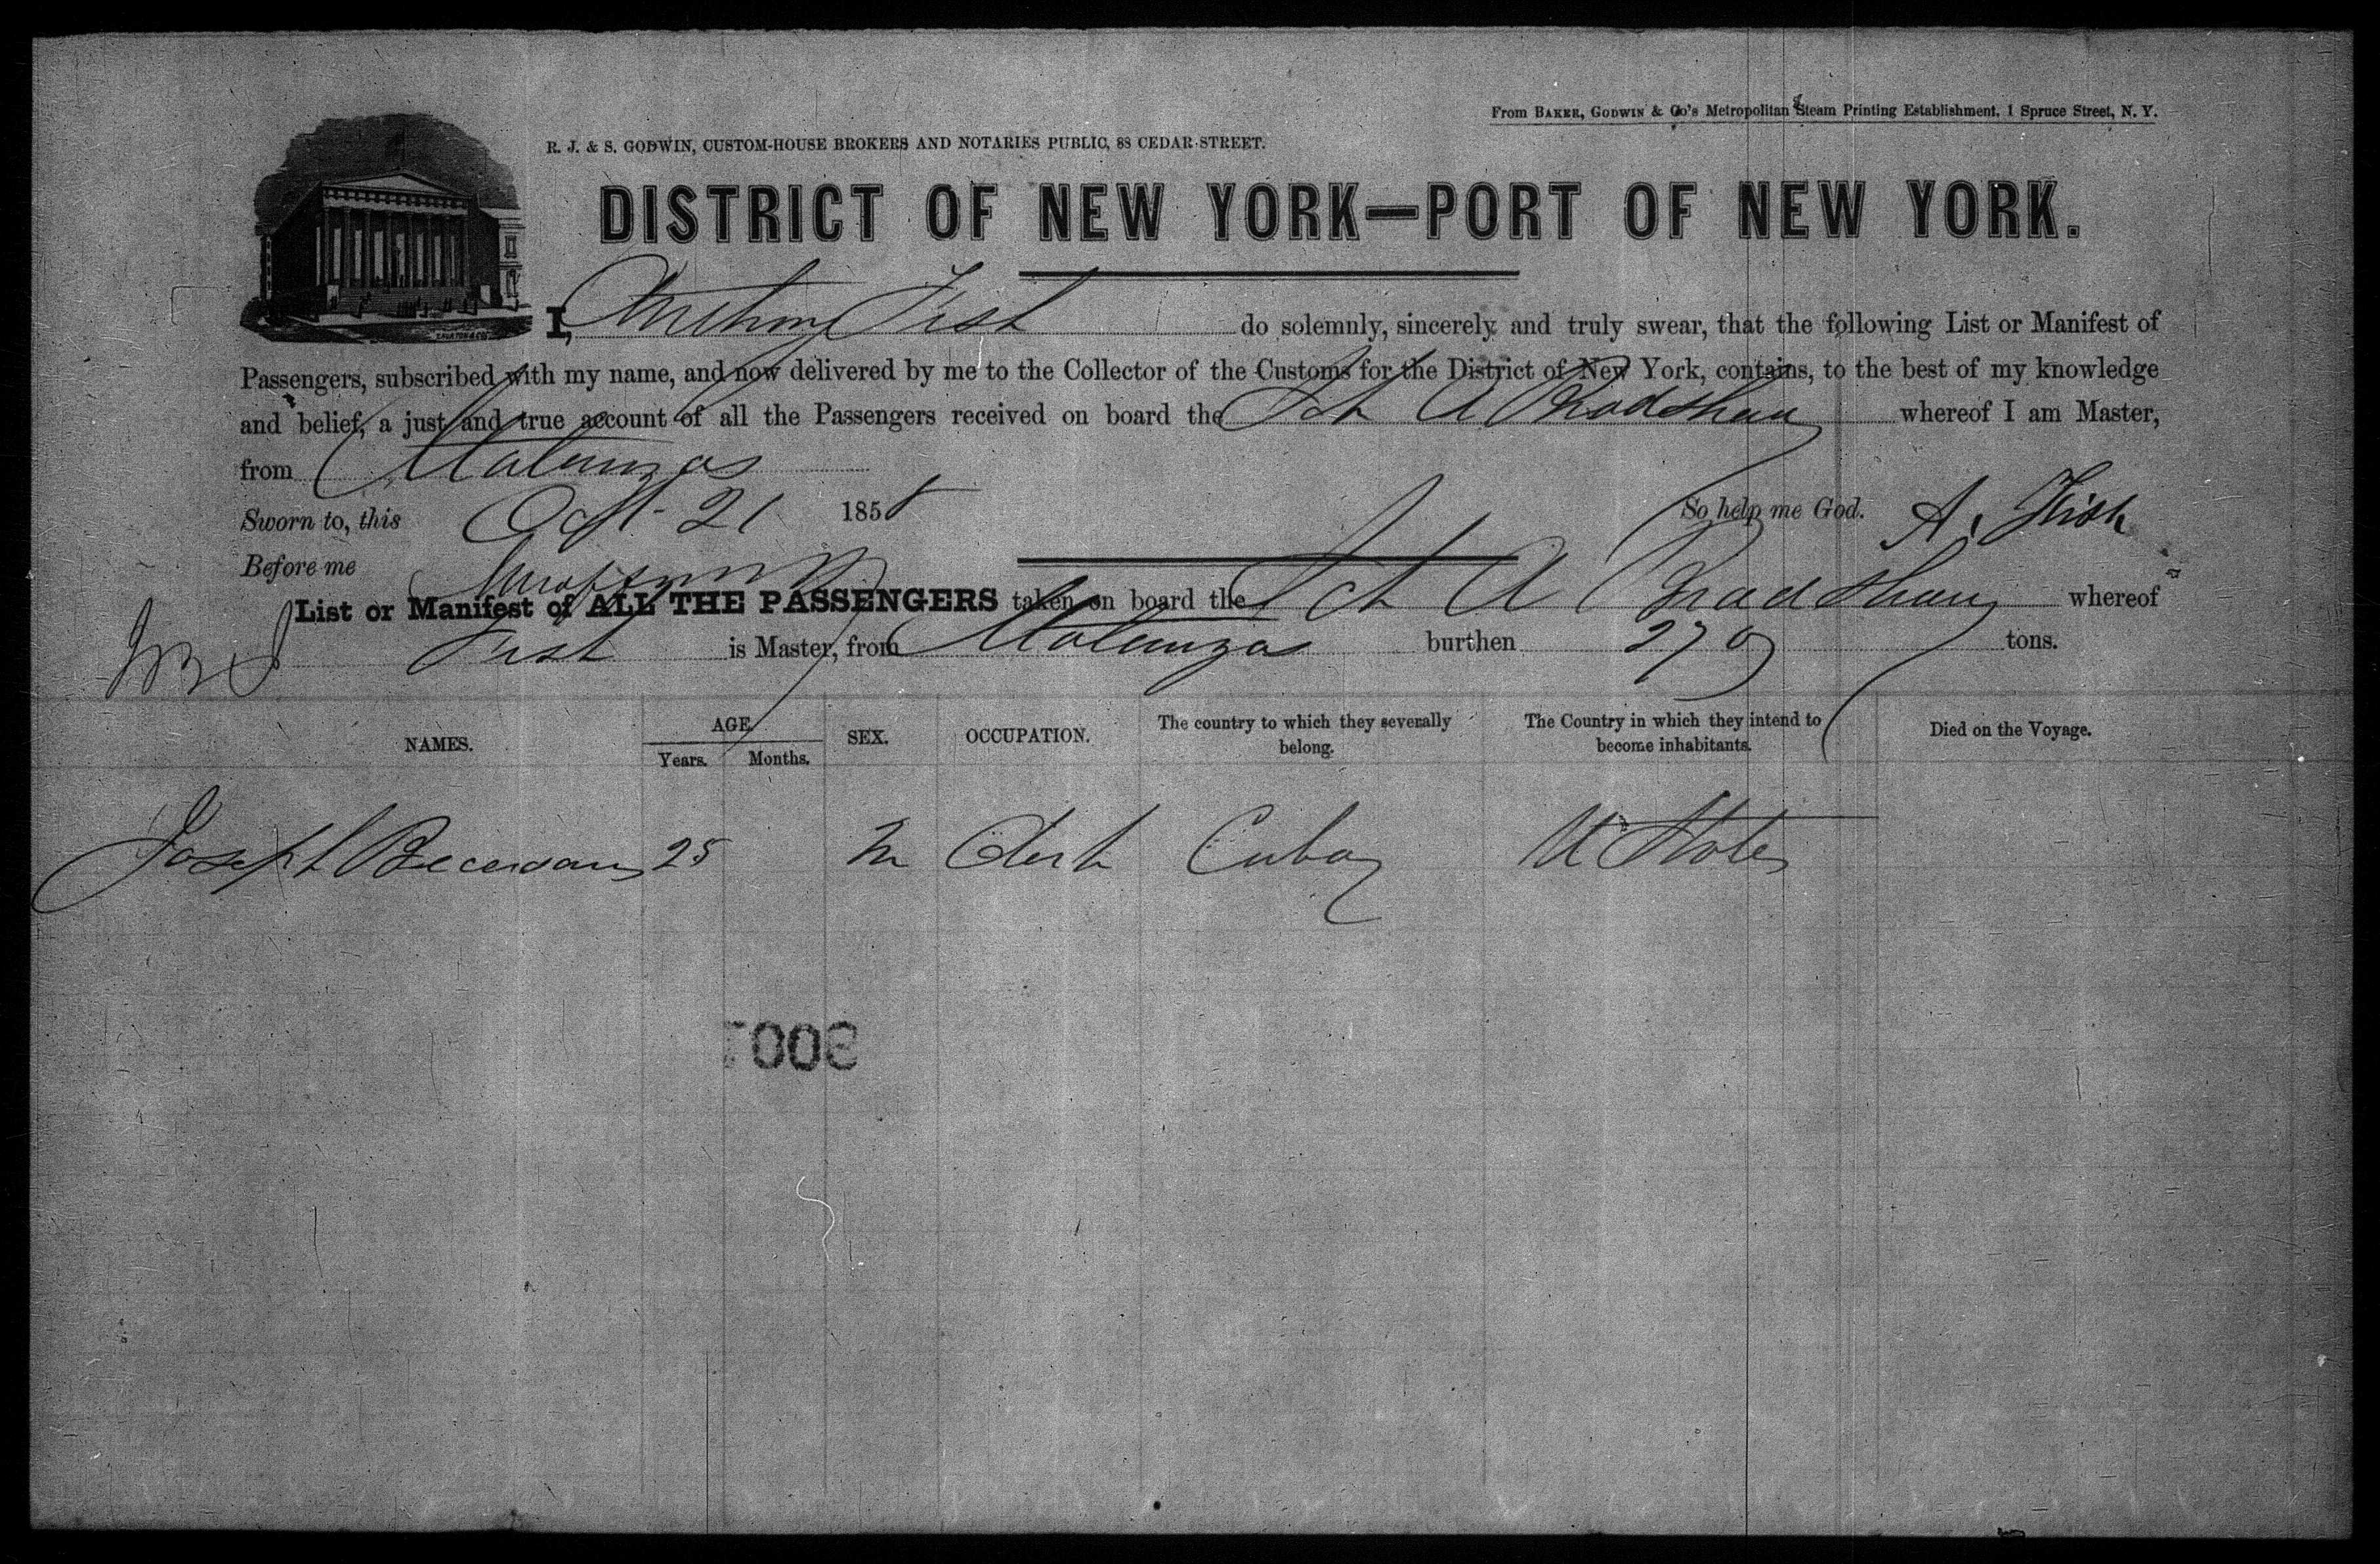 From BAKER, GODWIN & Co's Metropolitan Steam Printing Establishment, 1 Spruce Street, N. Y.
R. J. & S. GODWIN, CUSTOM-HOUSE BROKERS AND NOTARIES PUBLIC, 88 CEDAR-STREET.
DISTRICT OF NEW YORK—PORT OF NEW YORK.
I, Anthony Fish do solemnly, sincerely and truly swear, that the following List or Manifest of
Passengers, subscribed with my name, and now delivered by me to the Collector of the Customs for the District of New York, contains, to the best of my knowledge
and belief, a just and true account of all the Passengers received on board the Sch A Bradshaw whereof I am Master,
from Matanzas
Sworn to, this Oct 21 1858 So help me God. A. Fish
Before me
List or Manifest of ALL THE PASSENGERS taken on board the Sch A Bradshaw whereof
Fish is Master, from Matanzas burthen 279 tons.
NAMES. AGE. Years. Months. SEX. OCCUPATION. The country to which they severally belong. The Country in which they intend to become inhabitants. Died on the Voyage.
Joseph 25 M Clerk Cuba U States